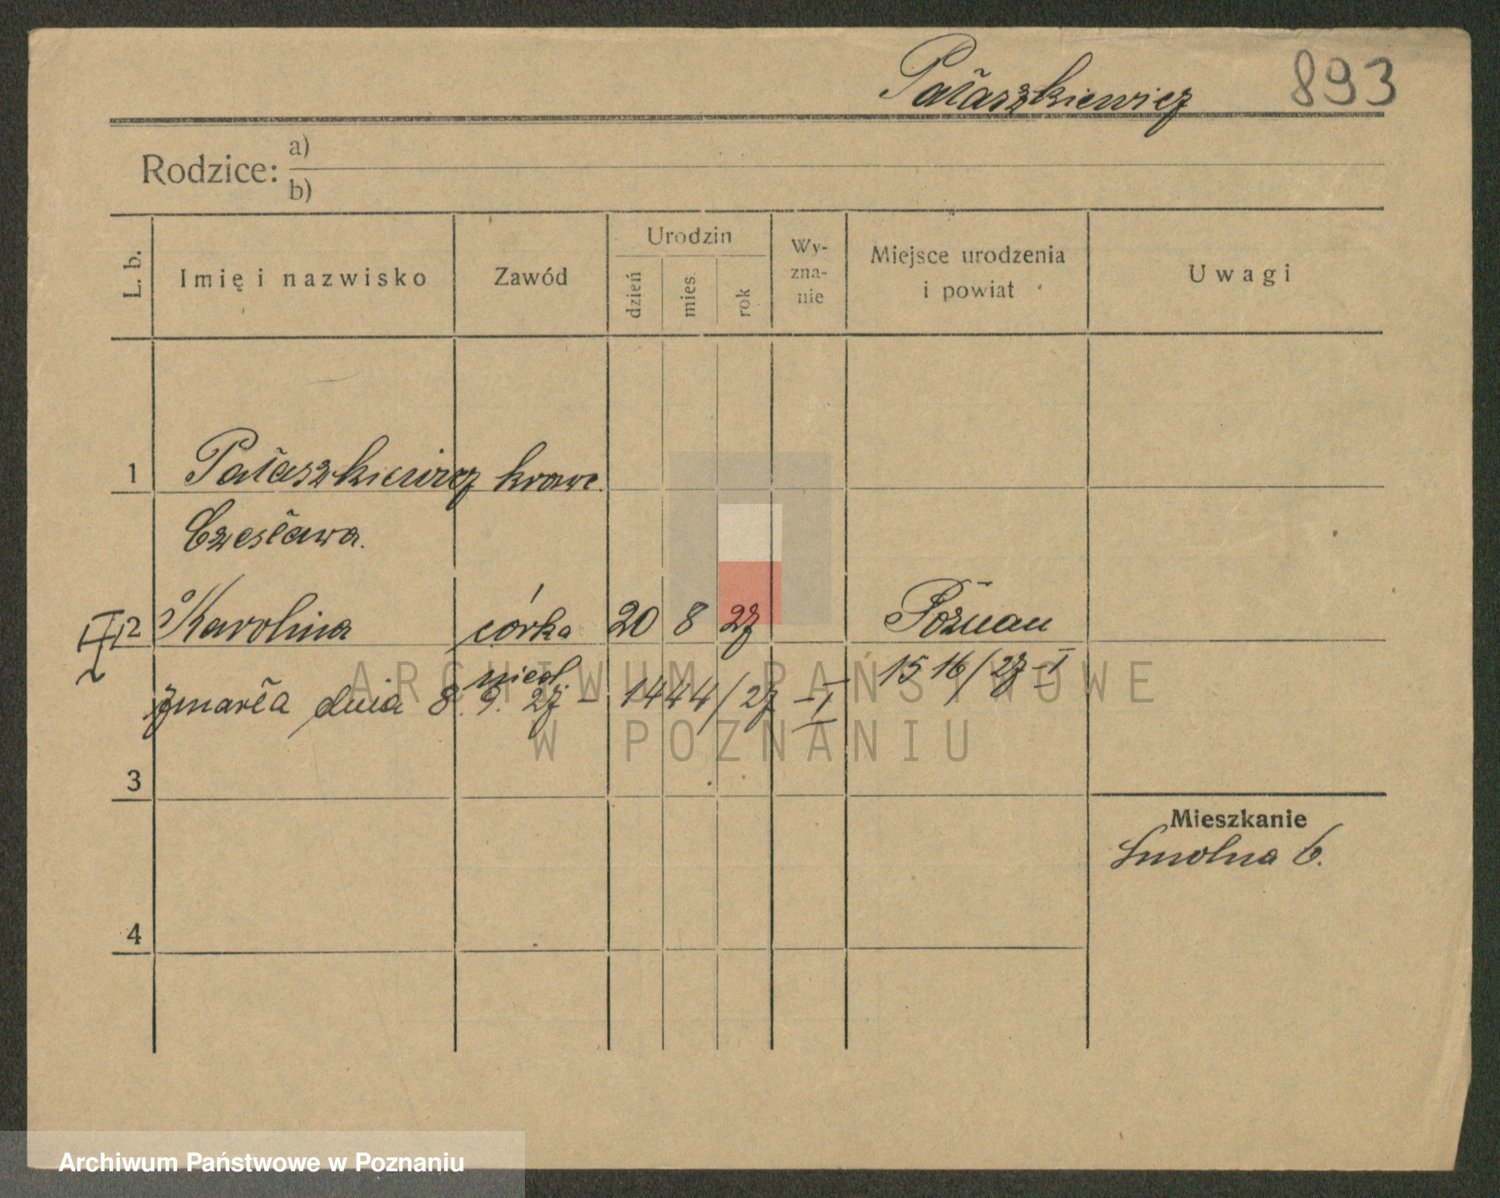 Pałaszkiewicz 893
Rodzice: a)
b)
L. b. Imię i nazwisko Zawód Urodzin dzień mies. rok Wy-zna-nie Miejsce urodzenia i powiat Uwagi
1 Pałaszkiewicz krawc.
Czesława.
2 Karolina córka 20 8 27 Poznań
nieśl. 1516/27-I
zmarła dnia 8. 9. 27 - 1444/27 - I
3
Mieszkanie
Smolna 6.
4
ARCHIWUM PAŃSTWOWE
W POZNANIU
Archiwum Państwowe w Poznaniu